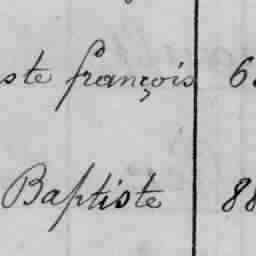 ste françois 6
Baptiste 88